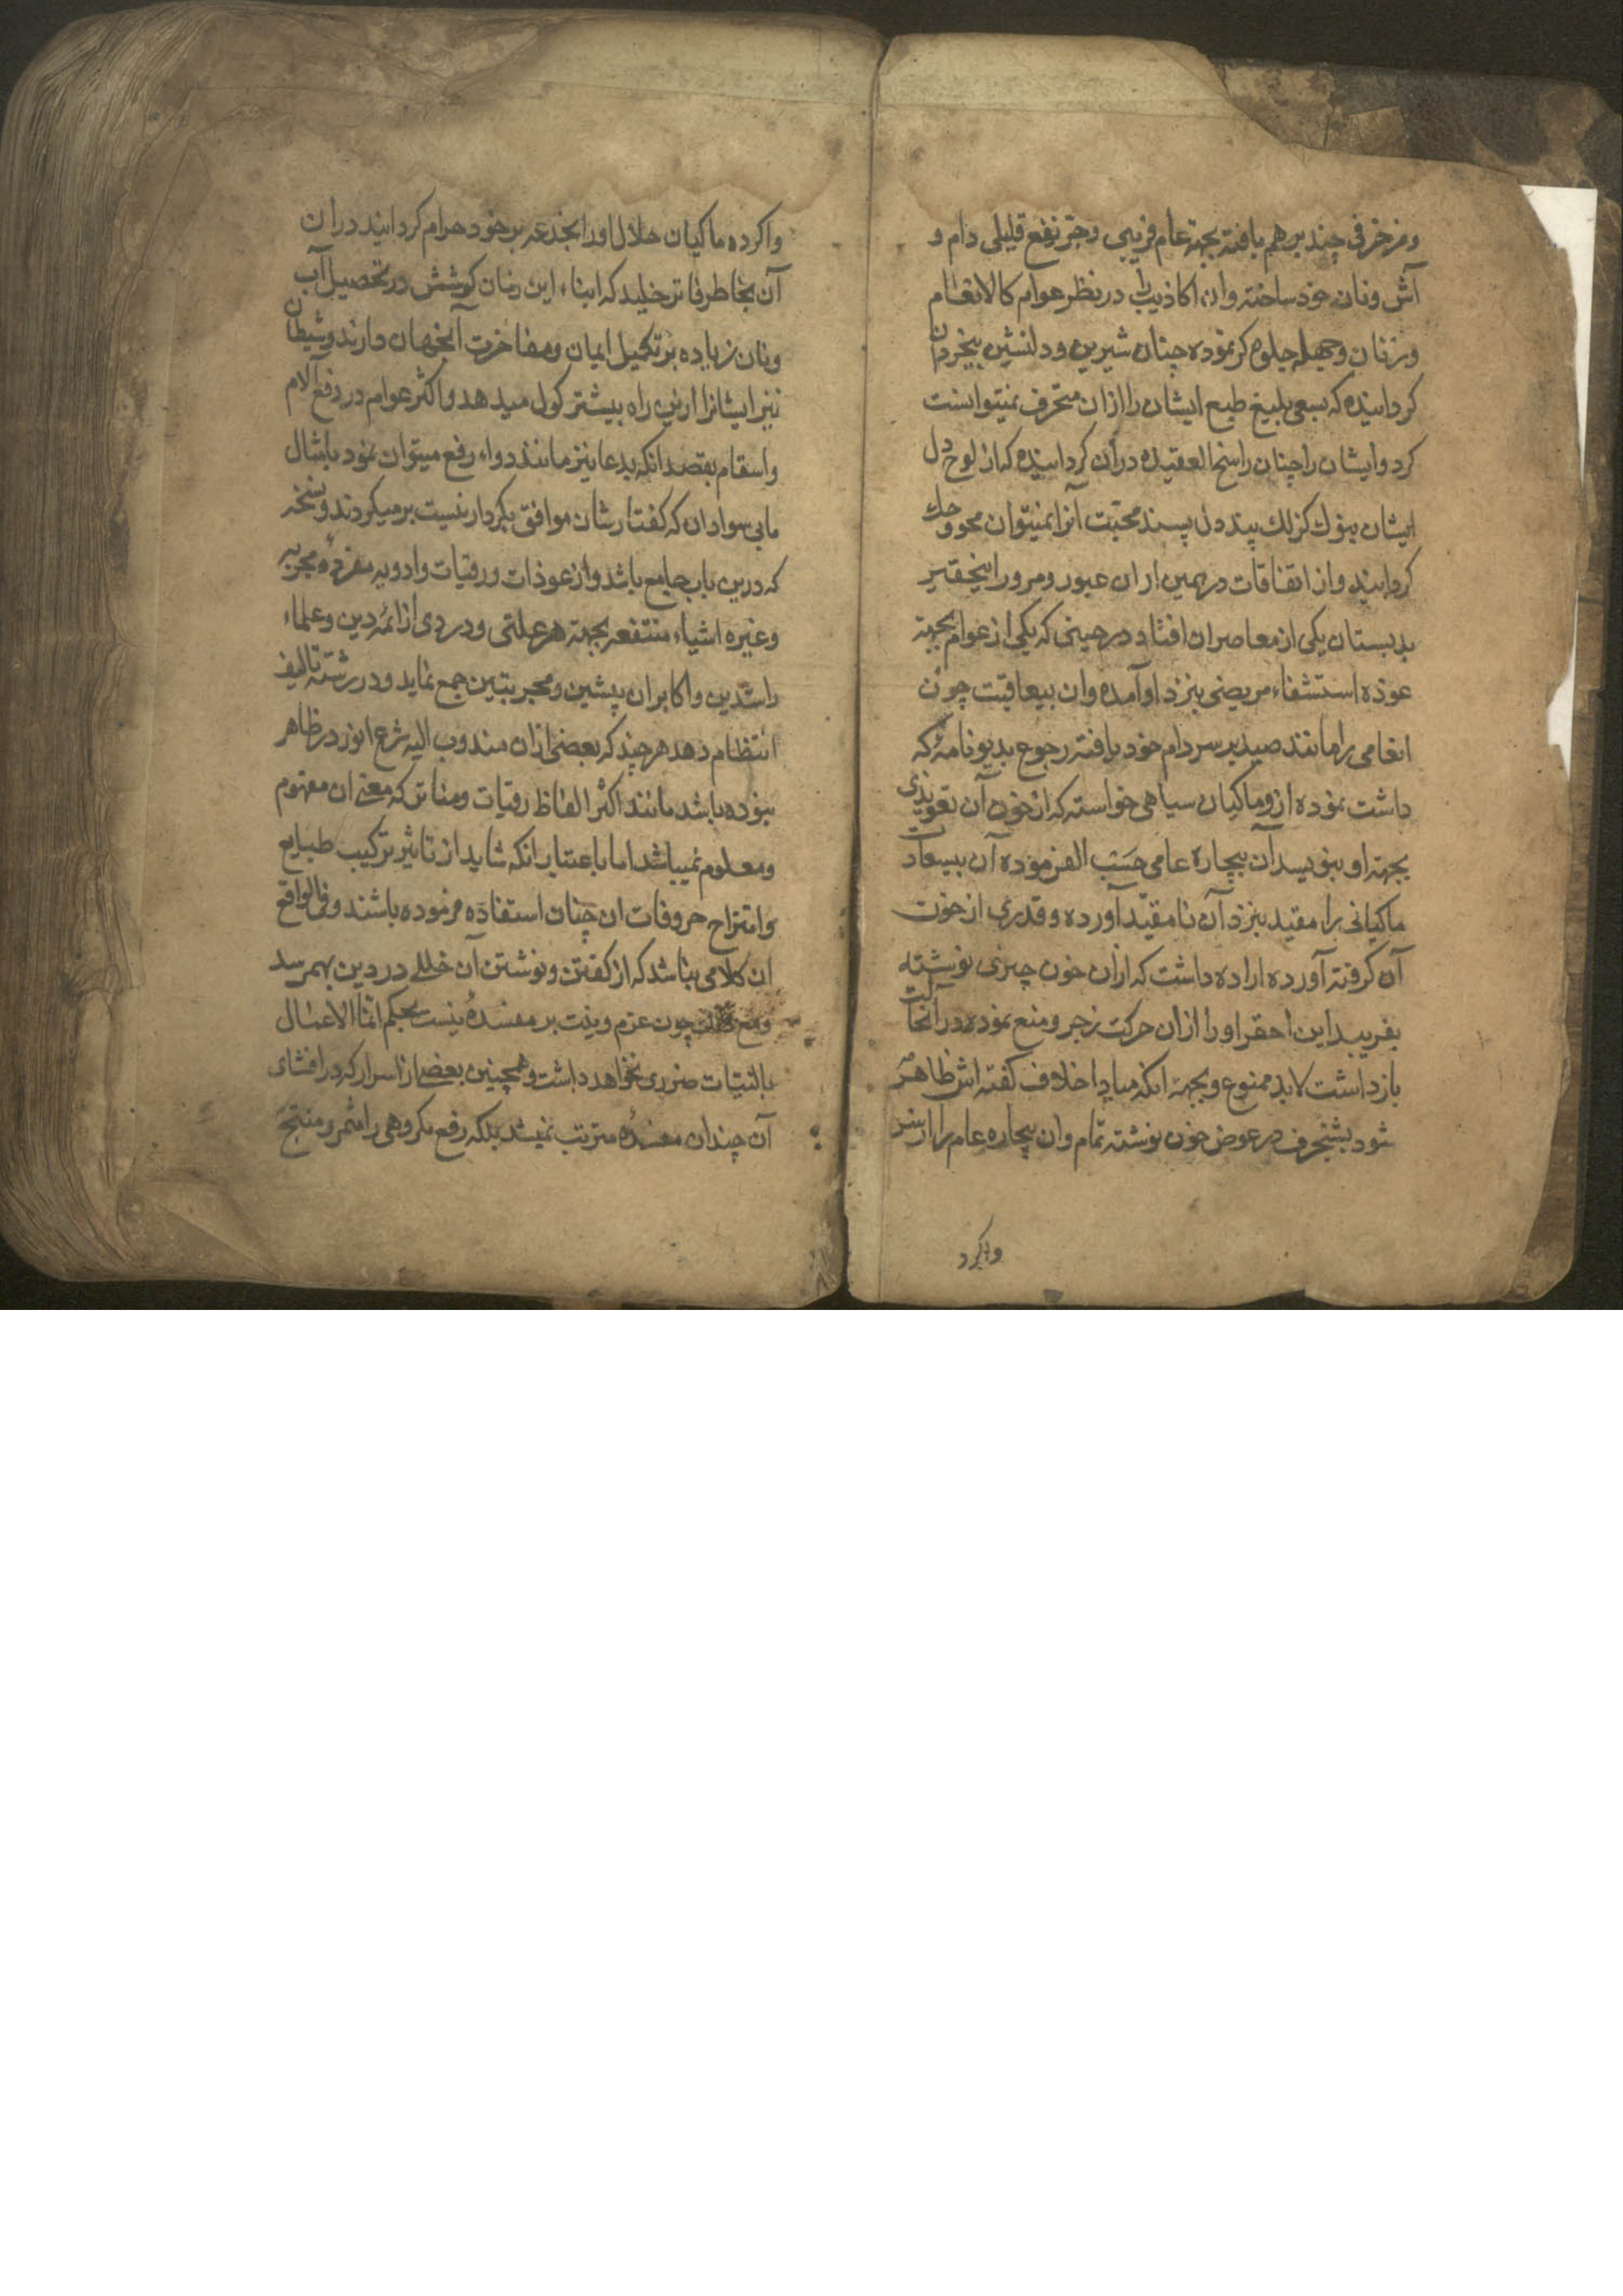 ومزخرفی چند برهم بافته بجهة عام فریبی وجر نفع قلیلی دام و
آش ونان خود ساخته وان اکاذیب را در نظر عوام کالانعام
وزنان وجهله جلوه گر نموده چنان شیرین ودلنشین بیخردان
کردانیده که بسعی بلیغ طبع ایشان را ازان منحرف نمیتوانست
کرد وایشان را چنان راسخ العقیده در آن کردانیده که از لوح دل
ایشان بنوک کزلک پند دل پسند محبت آنرا نمیتوان محو وحک
کردانید واز اتفاقات درهمین اوان عبور ومرور اینحقیر
بدبستان یکی از معاصران افتاد در حینی که یکی از عوام بجهة
عوذه استشفاء مریضی بنزد او آمده وان بیعاقبت چون
انعامی را مانند صید بر سر دام خود یافته رجوع بدیونامۀ که
داشت نموده ازو ماکیان سیاهی خواسته که از خون آن تعویذی
بجهة او بنویسد آن بیچاره عامی حسب الفرموده آن بیسعادت
ماکیانی را مقید بنزد آن نامقید آورده وقدری از خون
آن کرفته آورده اراده داشت که ازان خون چیزی نوشته
بفریبد این احقر او را ازان حرکت زجر ومنع نموده در آنحالت
بازداشت لابد ممنوع وبجهة انکه مبادا خلاف کفته اش ظاهر
شود بشنجرف در عوض خون نوشته تمام وان بیچاره عام را از سر
واکرد
واکرده ماکیان حلال اورا بخدعه بر خود حرام کردانید دران
آن بخاطر فاتر خلید که ابناء این زمان کوشش در تحصیل آب
ونان زیاده بر تکمیل ایمان ومفاخرت آنجهان دارند وشیطان
نیز ایشانرا ازین راه بیشتر کول میدهد واکثر عوام در دفع آلام
واسقام بقصد انکه بدعا نیز مانند دواء رفع میتوان نمود بامثال
مابی سوادان که کفتارشان موافق بکردار نیست برمیکردند ونسخۀ
که درین باب جامع باشد واز عوذات ورقیات وادویه مفرده مجربه
وغیره اشیاء منتفعه بجهة هر علتی ودردی از ائمه دین وعلماء
راشدین واکابران پیشین ومجربین جمع نماید ودر رشته تالیف
انتظام دهد هر چند که بعضی ازان مندوب الیه شرع انور در ظاهر
نبوده باشد مانند اکثر الفاظ رقیات ومناتر که معنی ان مفهوم
ومعلوم نمیباشد اما باعتبار انکه شاید از تاثیر ترکیب طبایع
وامتزاج حروفات ان چنان استفاده فرموده باشند وفی الواقع
ان کلامی نباشد که از کفتن ونوشتن آن خللی در دین بهمرسد
ومع چون عزم ونیت بر مفسدۀ نیست بحکم انما الاعمال
بالنیات ضرری نخواهد داشت وهمچنین بعضی از اسرار که در افشای
آن چندان مفسدۀ مترتب نمیشد بلکه رفع مکروهی را مثمر ومنتج